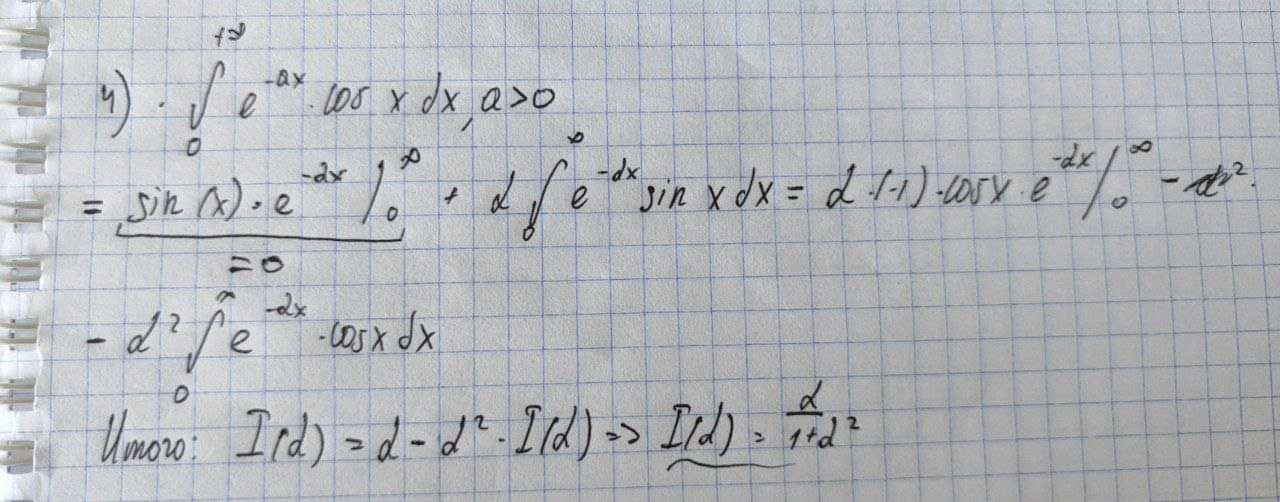 4) · ∫₀^{+∞} e^{-ax} · cos x dx, a > 0
= sin(x) · e^{-αx} |₀^∞ + α ∫₀^∞ e^{-αx} sin x dx = α · (-1) · cos x · e^{-αx} |₀^∞ -
= 0
- α² ∫₀^∞ e^{-αx} · cos x dx
Итого: I(α) = α - α² · I(α) => I(α) = α/(1+α²)